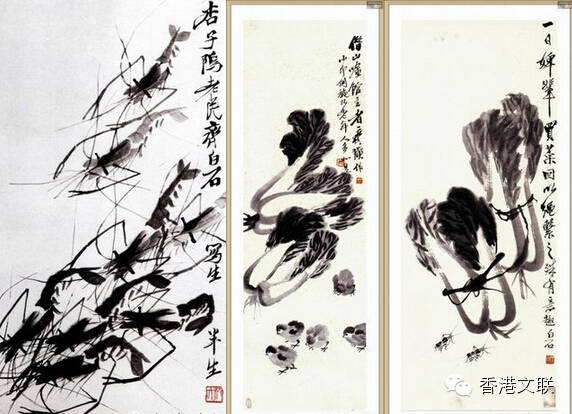 杏子隖老民齊白石
寫生
半生
借山唫館主者齊璜作
一日婢輩買菜回以繩繫之殊有意趣白石
香港文联